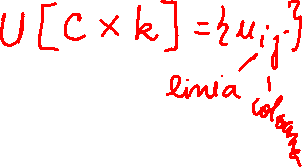 U[C×k]={u_{ij}.}
linia coloana